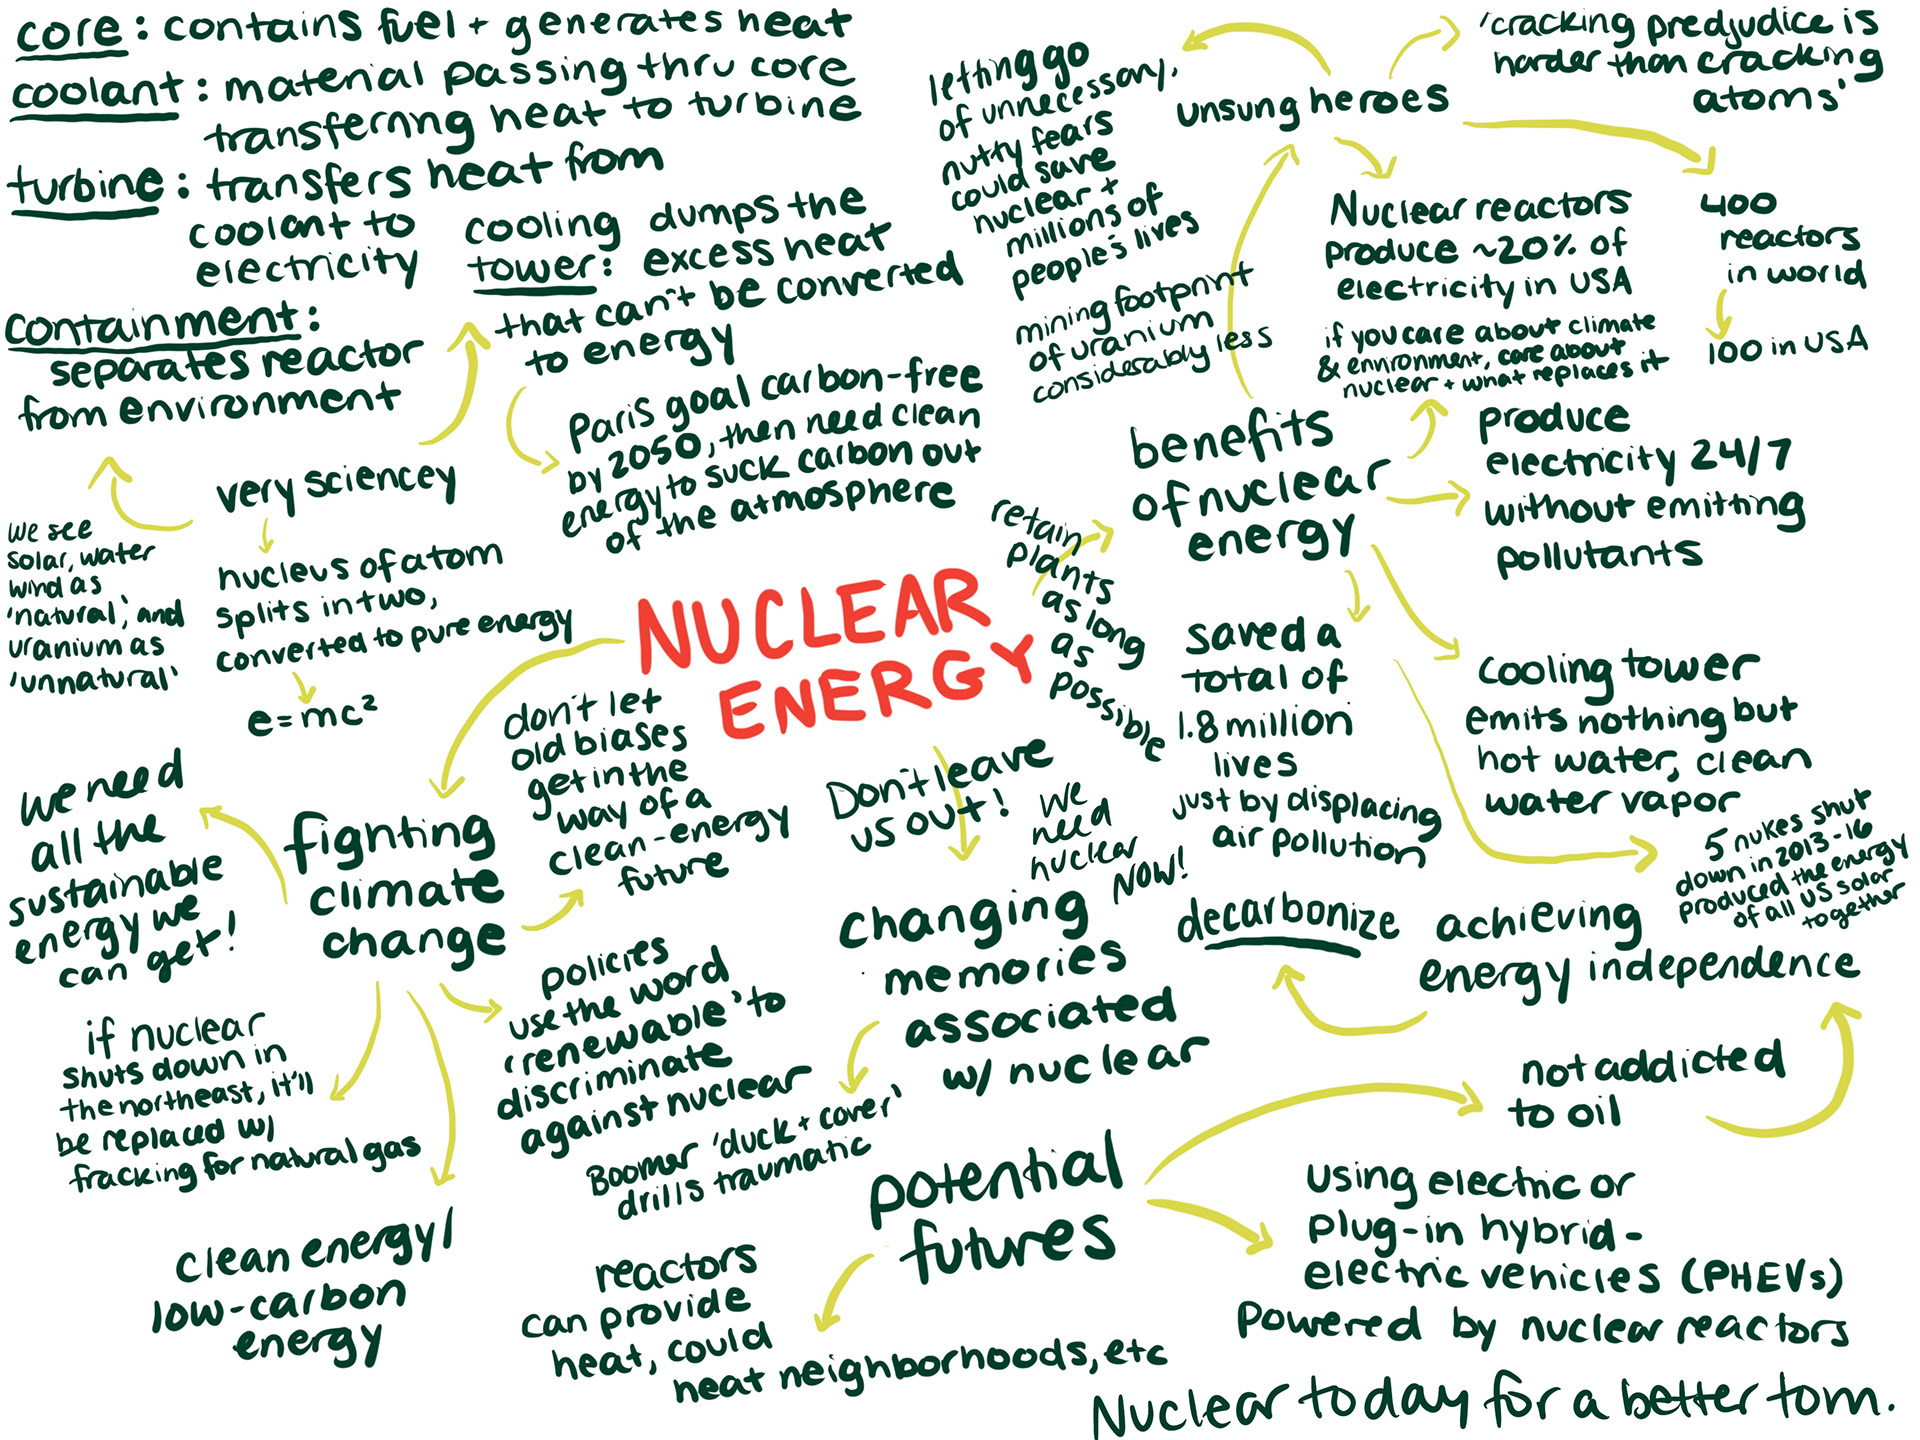 core: contains fuel + generates heat
coolant: material passing thru core
transferring heat to turbine
turbine: transfers heat from
coolant to
electricity
cooling tower: dumps the
excess heat
that can't be converted
to energy
containment:
separates reactor
from environment
very sciencey
we see
solar, water
wind as
'natural', and
uranium as
'unnatural'
nucleus of atom
splits in two,
converted to pure energy
e=mc²
Paris goal carbon-free
by 2050, then need clean
energy to suck carbon out
of the atmosphere
letting go
of unnecessary,
nutty fears
could save
nuclear +
millions of
people's lives
unsung heroes
'cracking predjudice is
harder than cracking
atoms'
Nuclear reactors
produce ~20% of
electricity in USA
400
reactors
in world
100 in USA
if you care about climate
& environment, care about
nuclear + what replaces it
mining footprint
of uranium
considerably less
benefits
of nuclear
energy
produce
electricity 24/7
without emitting
pollutants
retain
plants
as long
as
possible
NUCLEAR
ENERGY
saved a
total of
1.8 million
lives
just by displacing
air pollution
cooling tower
emits nothing but
hot water, clean
water vapor
5 nukes shut
down in 2013-16
produced the energy
of all US solar
together
don't let
old biases
get in the
way of a
clean-energy
future
we need
all the
sustainable
energy we
can get!
fighting
climate
change
policies
use the word
'renewable' to
discriminate
against nuclear
if nuclear
shuts down in
the northeast, it'll
be replaced w/
fracking for natural gas
clean energy/
low-carbon
energy
Don't leave
us out!
we
need
nuclear
NOW!
changing
memories
associated
w/ nuclear
Boomer 'duck + cover'
drills traumatic
decarbonize
achieving
energy independence
not addicted
to oil
potential
futures
using electric or
plug-in hybrid-
electric vehicles (PHEVs)
powered by nuclear reactors
reactors
can provide
heat, could
heat neighborhoods, etc
Nuclear today for a better tom.